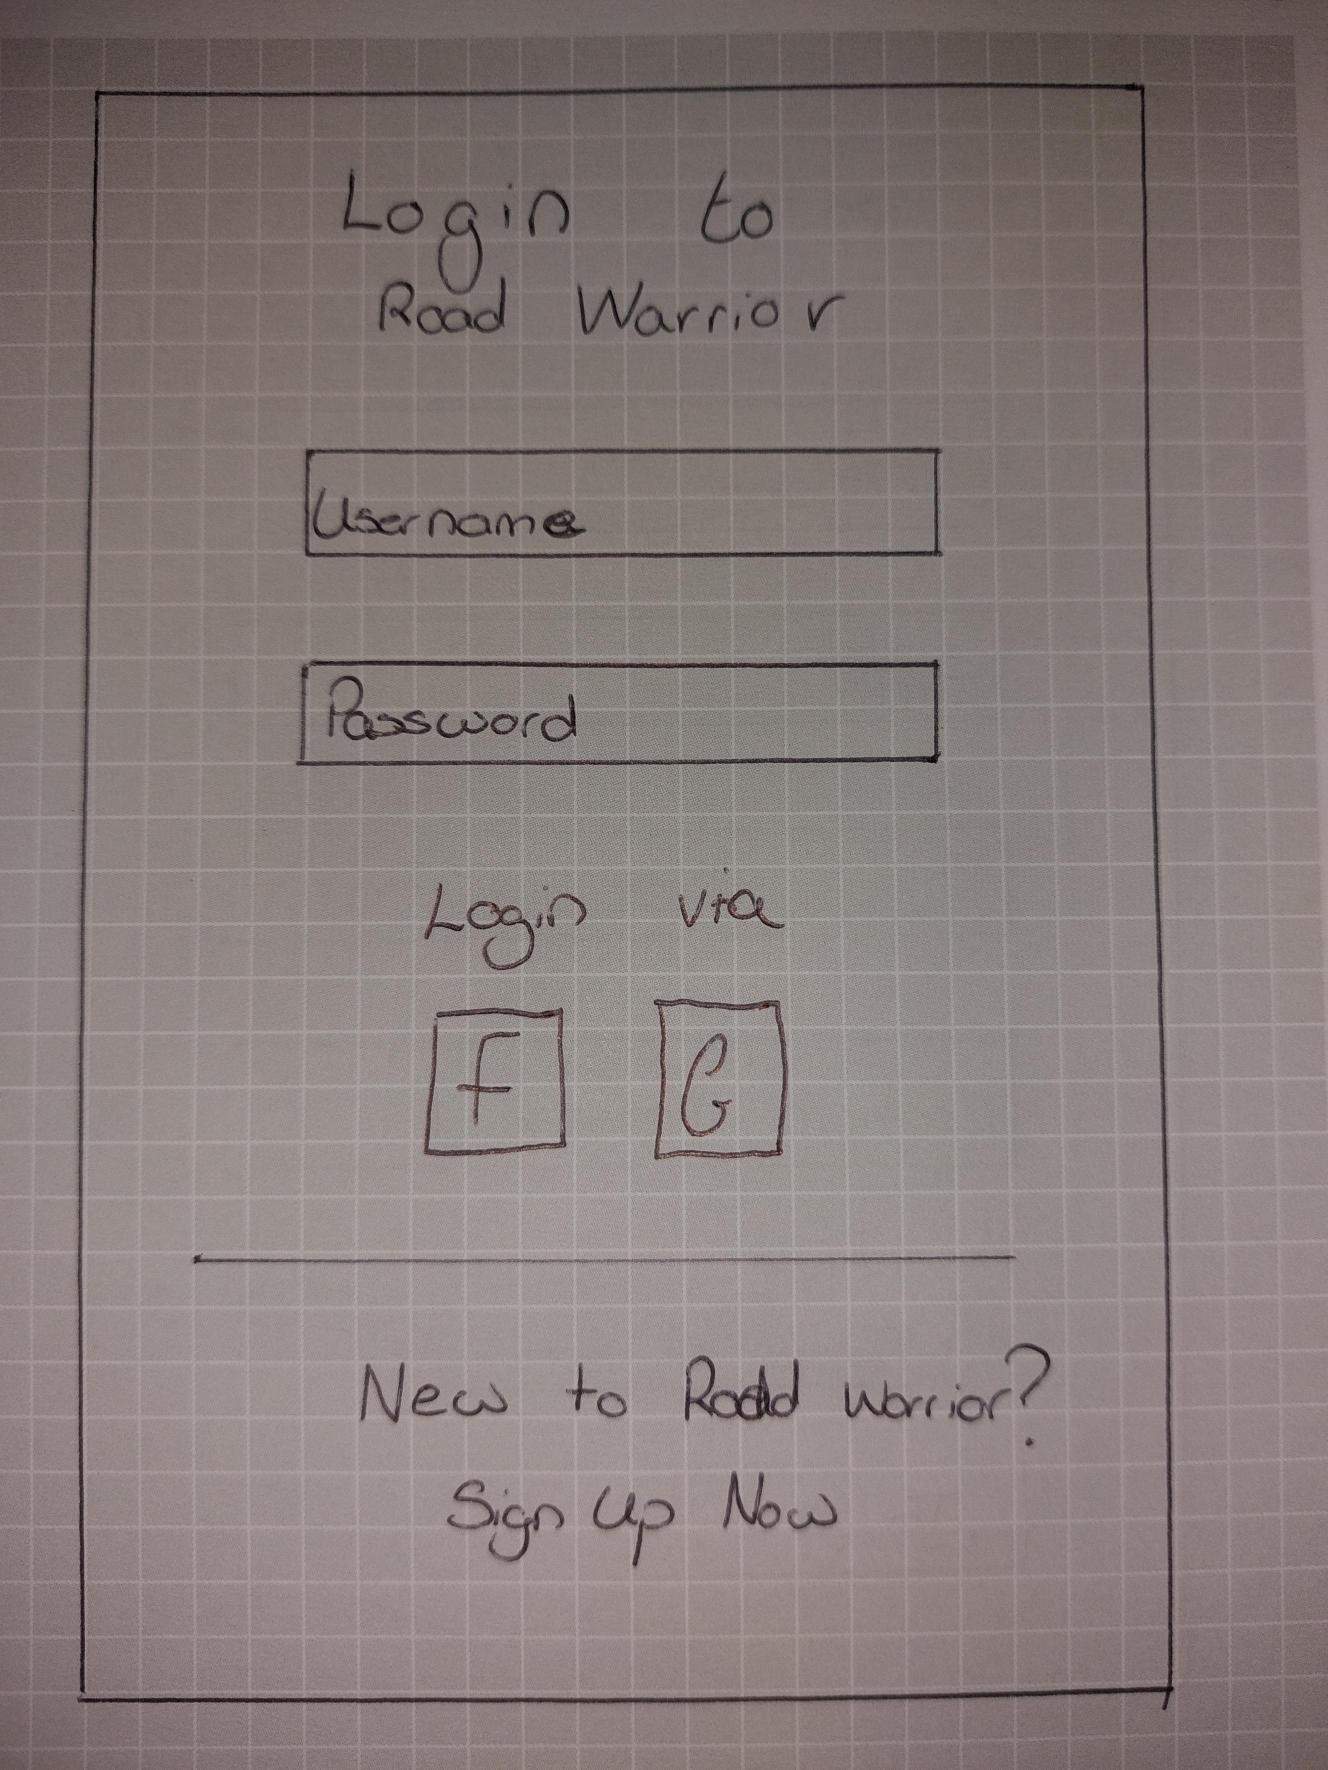 Login to
Road Warrior
Username
Password
Login via
F G
New to Road Warrior?
Sign Up Now